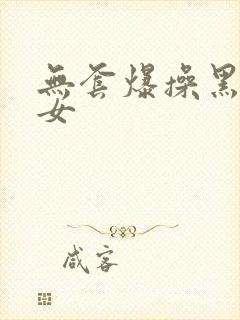 無套爆操黑
女
咸客